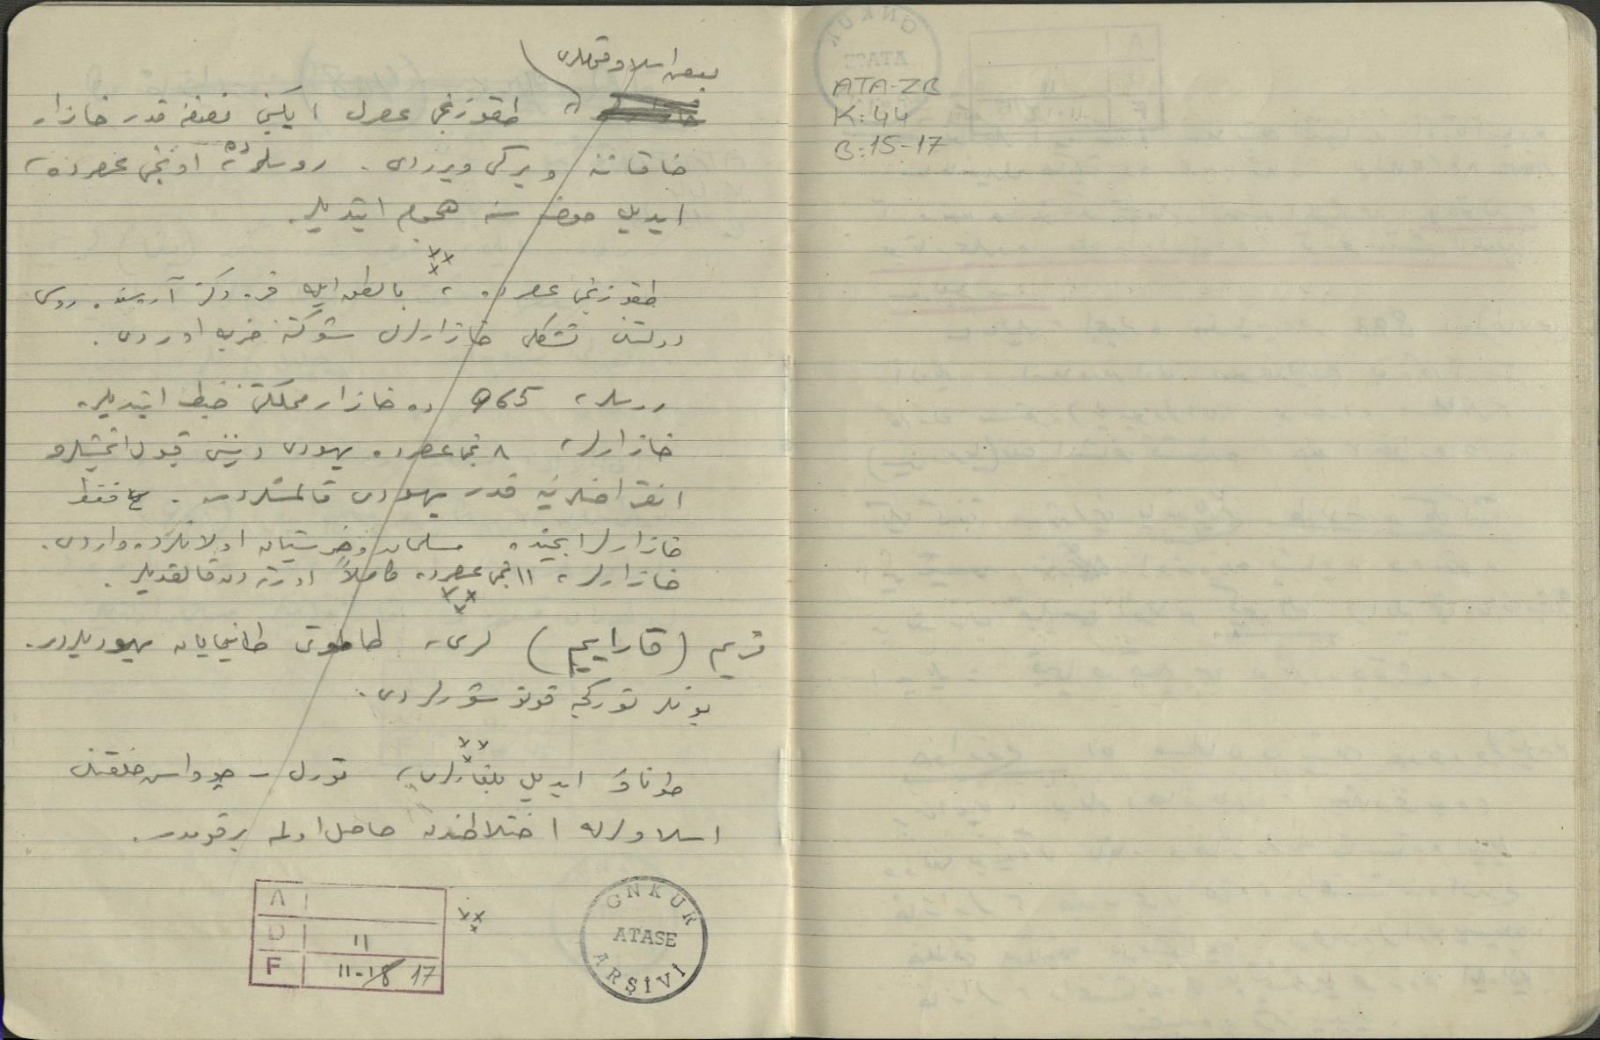 بعض اسلاو قبیله‌لری
طقوزنجی عصرك ایكنجی نصفنه قدر خازار
خاقاننه ویركی ویرردی. روسلر ده اونجی عصرده،
ایدیل حوضه سنه هجوم ایتدیلر.
طقوزنجی عصرده، بالطق ایله قره دكز آره‌سنده روس
دولتنك تشكلی خازارلرك شوكتنه ضربه اوردی.
روسلر، 965 ده خازار مملكتنی ضبط ایتدیلر.
خازارلر، ٨ نجی عصرده یهودی دیننی قبول ایتمشلر و
انقراضلرینه قدر یهودی قالمشلردر. فقط
خازارلر ایچنده مسلمان و خرستیان اولانلر ده واردی.
خازارلر، ١١ نجی عصرده كاملاً اورته دن قالقدیلر.
قریم (قارایم) لری، طانیمایان یهودیلردر.
بونلر توركجه قونوشورلردی.
طونا و ایدیل بلغارلری، تورك - چوواش خلقنك
اسلاولرله اختلاطندن حاصل اولمه بر قومدر.
A
D 11
F 11-18 17
GNKUR
ATASE
ARŞİVİ
ATA-ZB
K:44
B:15-17